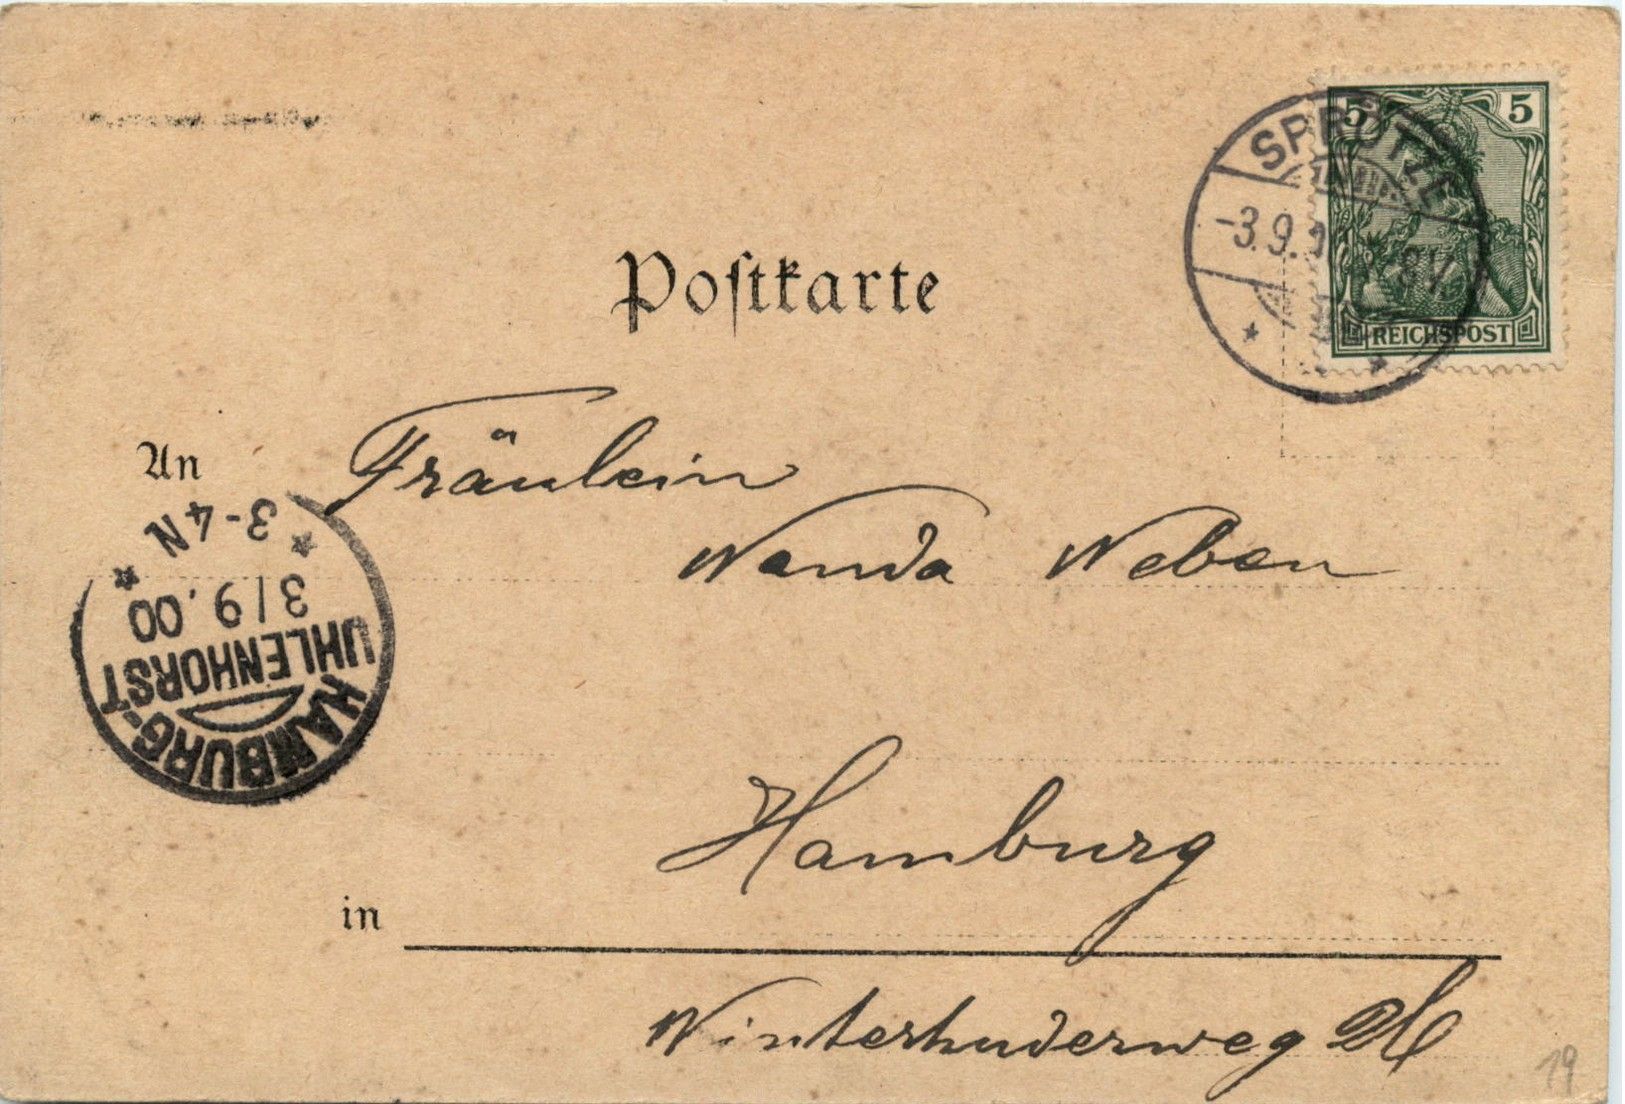 5 5
SPRÜTZE
-3.9. 8V.
REICHSPOST
Postkarte
An Fräulein
Wanda Weben
3-4N
3/9.00
UHLENHORST
HAMBURG-
in Hamburg
Winterhuderweg
19